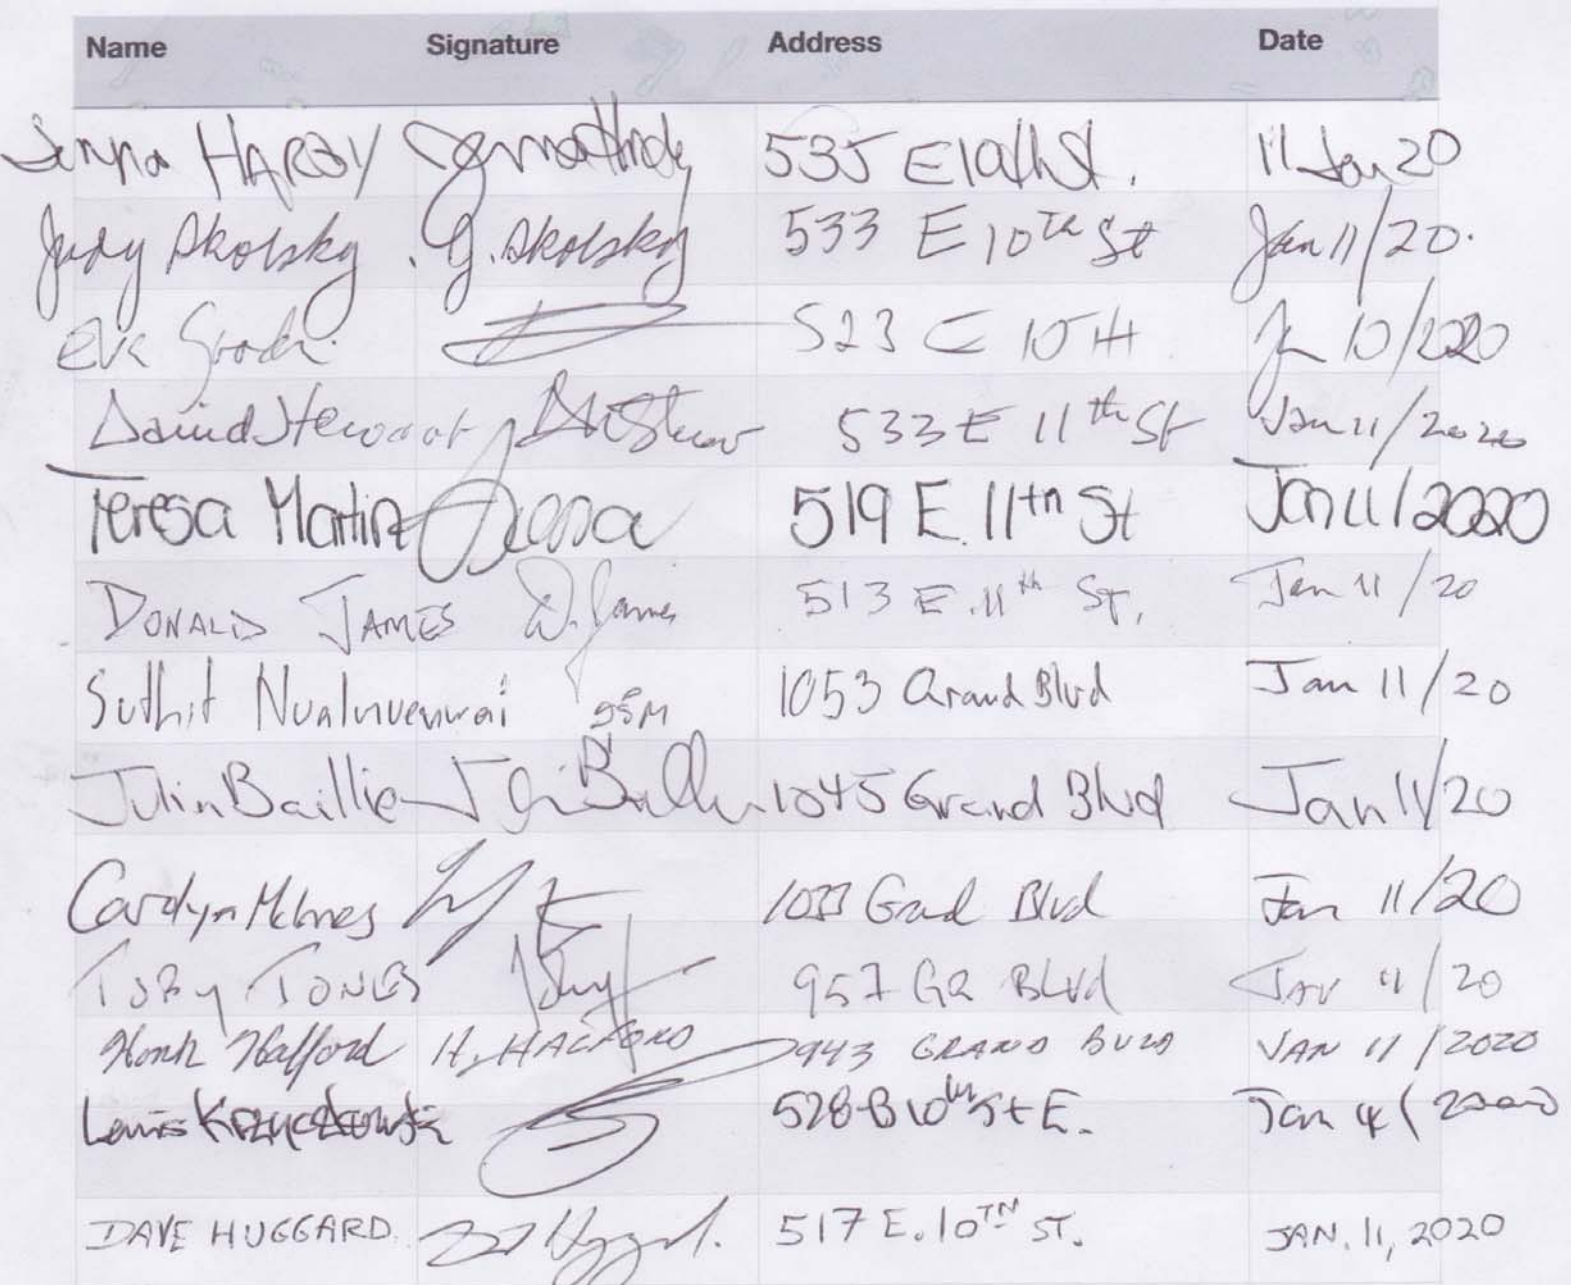 Name Signature Address Date
Jenna HARDY 535 E 10th St. 11 Jan 20
Judy Skolsky G. Skolsky 533 E 10TH St Jan 11/20.
Eva 523 E 10TH Jan 10/2020
David Stewart 533 E 11th St Jan 11/2020
Teresa Martin Teresa 519 E. 11th St Jan 11/2020
DONALD JAMES D. James 513 E. 11th ST. Jan 11/20
Suthit SSM 1053 Grand Blvd Jan 11/20
Julia Baillie 1045 Grand Blvd Jan 11/20
Carolyn McInnes 1033 Grand Blvd Jan 11/20
TOBY JONES 957 GR BLvd JAN 11/20
Hank Halford H. HALFORD 943 GRAND BLVD JAN 11/2020
528-B 10th St E. Jan
DAVE HUGGARD D Huggard. 517 E. 10TH ST. JAN. 11, 2020